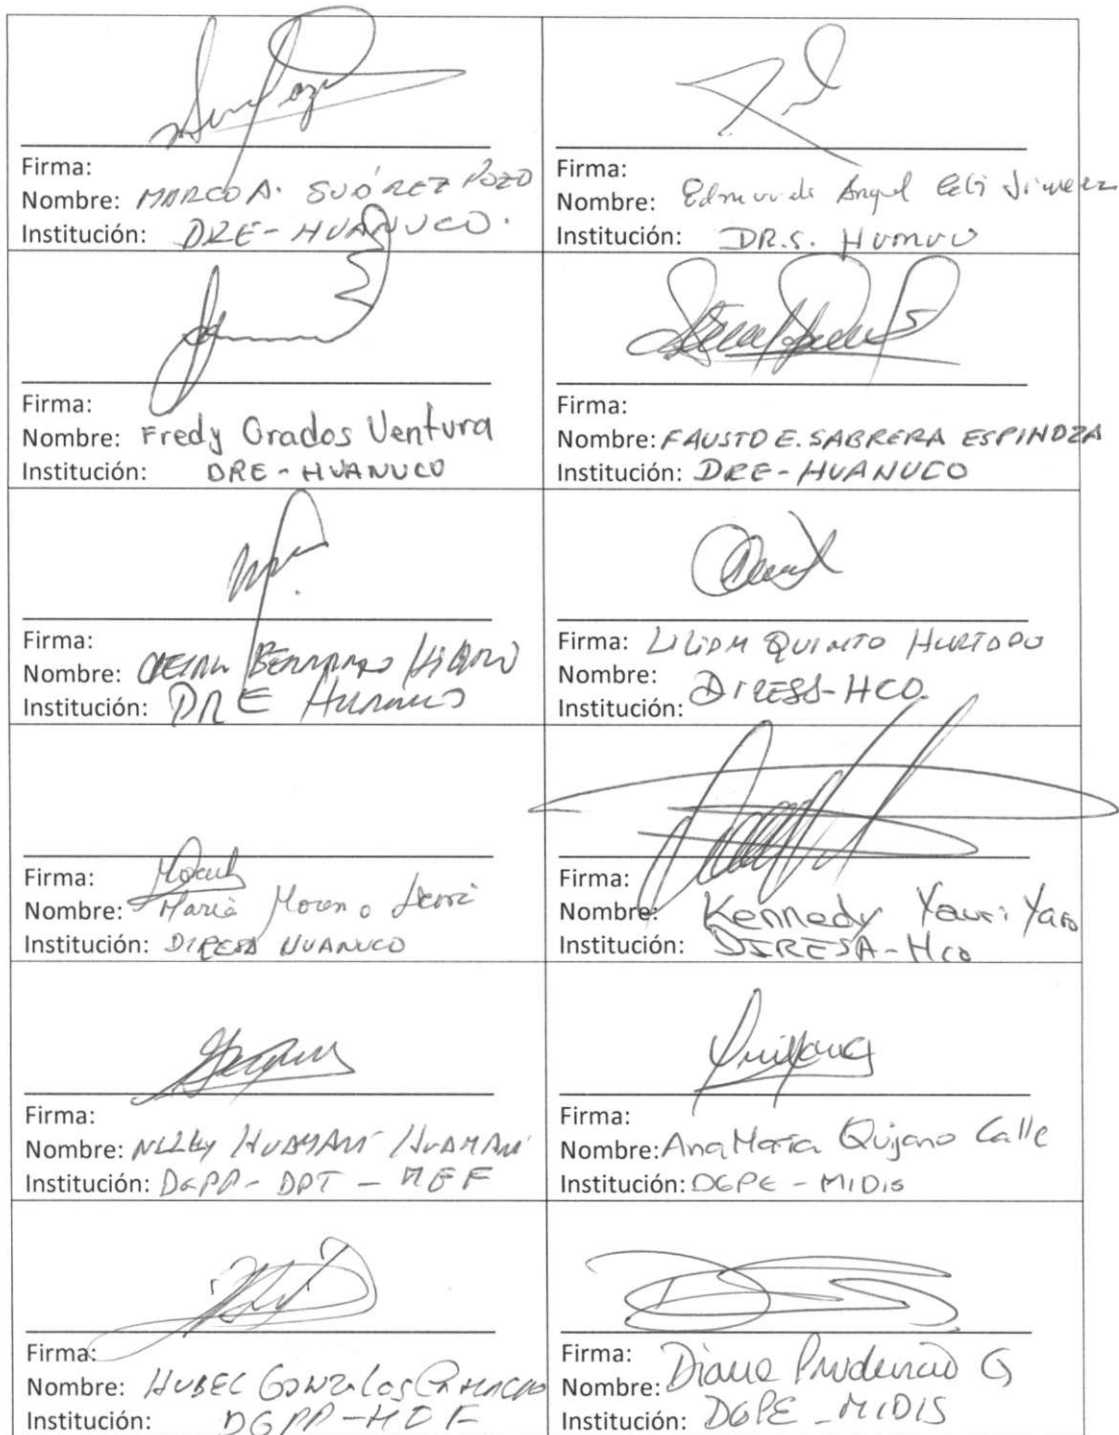 Firma:
Nombre: MARCO A. SUÁREZ POZO
Institución: DRE - HUANUCO.
Firma:
Nombre: Edmundo Angel
Institución: DR.S.
Firma:
Nombre: Fredy Grados Ventura
Institución: DRE - HUANUCO
Firma:
Nombre: FAUSTO E. SABRERA ESPINOZA
Institución: DRE - HUANUCO
Firma:
Nombre:
Institución: DRE Huanuco
Firma: LILIAM QUINTO HURTADO
Nombre:
Institución: DIRESS-HCO.
Firma:
Nombre: Maria Moreno
Institución: DIRESA HUANUCO
Firma:
Nombre: Kennedy Yauri Yaro
Institución: DIRESA-Hco
Firma:
Nombre: HUAMANÍ HUAMANÍ
Institución: DGPP - DPT - MEF
Firma:
Nombre: Ana Maria Quijano Calle
Institución: DGPE - MIDIS
Firma:
Nombre:
Institución: DGPP - MEF
Firma:
Nombre: Diana Prudencio G
Institución: DGPE - MIDIS